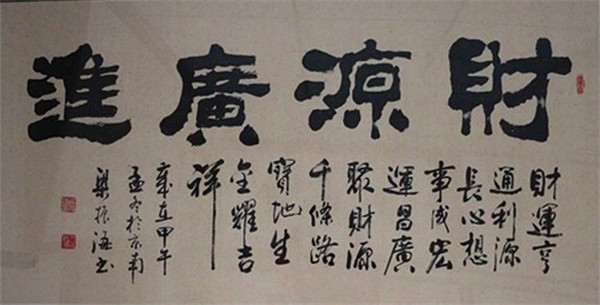 財源廣進
財運亨
通利源
長心想
事成宏
運昌廣
聚財源
千條路
寶地生
金耀吉
祥
歲在甲午
孟冬於京南
梁振海書